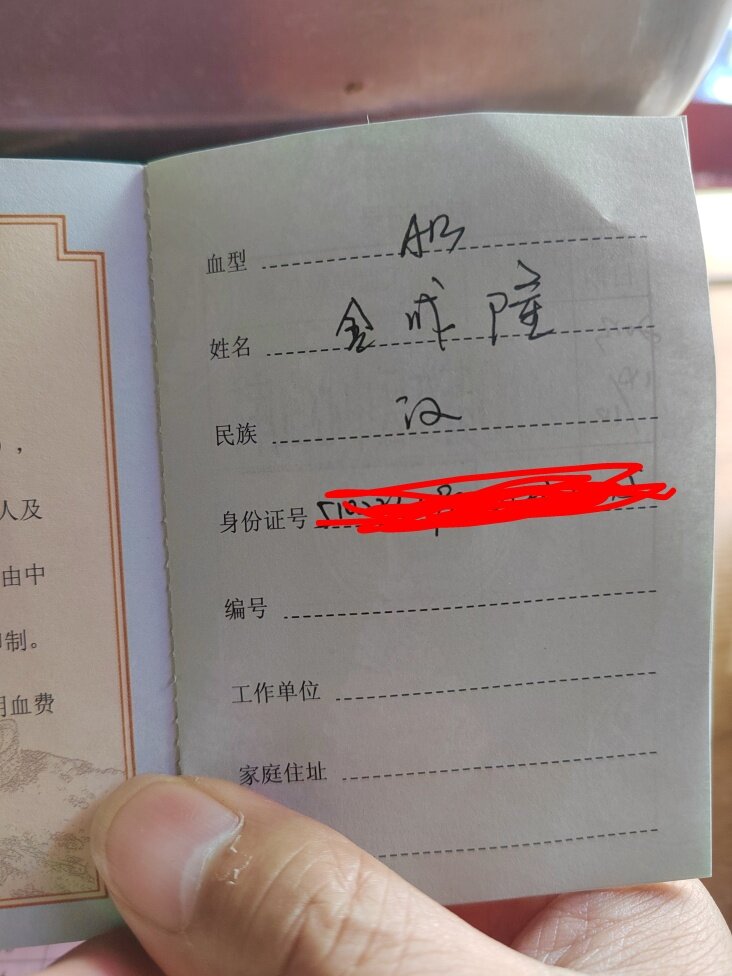 ，
人及
由中
制。
用血费
血型 AB
姓名 金成隆
民族 汉
身份证号
编号
工作单位
家庭住址